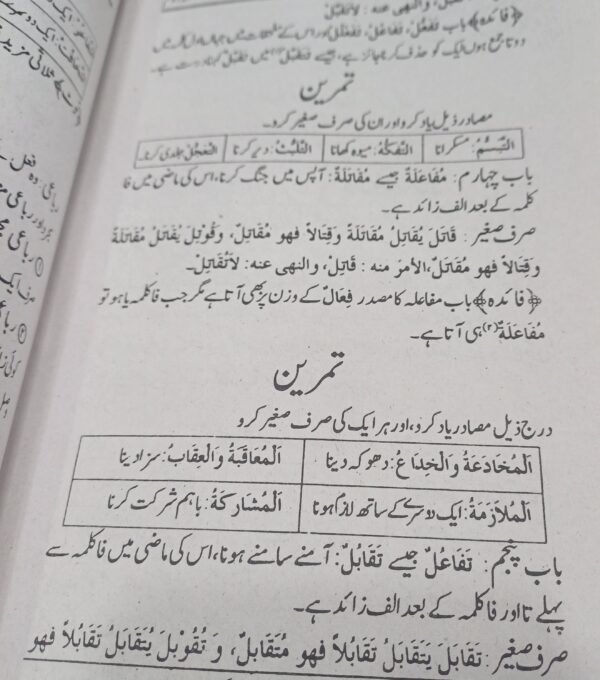 والنهى عنه : لاتَتَقَبَّلْ
﴿فائدہ﴾ باب تَفَعُّلْ، تَفَاعُلْ، تَفَعْلُلْ اور اس کے ملحقات میں جہاں
دو تا جمع ہوں ایک کو حذف کرنا جائز ہے، جیسے تَتَقَبَّلُ میں تَقَبَّلُ کہنا درست ہے۔
تمرین
مصادر ذیل یاد کرو اور ان کی صرف صغیر کرو۔
اَلتَّبَسُّمُ: مسکرانا
اَلتَّفَكُّهُ: میوہ کھانا
اَلتَّلَبُّثُ: دیر کرنا
اَلتَّعَجُّلُ: جلدی کرنا۔
باب چہارم: مُفَاعَلَةٌ جیسے مُقَاتَلَةٌ: آپس میں جنگ کرنا، اس کی ماضی میں فا
کلمہ کے بعد الف زائد ہے۔
صرف صغیر: قَاتَلَ يُقَاتِلُ مُقَاتَلَةً وَقِتَالاً فهو مُقَاتِلٌ، وَقُوْتِلَ يُقَاتَلُ مُقَاتَلَةً
وَقِتَالاً فهو مُقَاتَلٌ، الأمرُ منه : قَاتِلْ، والنهى عنه: لاَتُقَاتِلْ۔
﴿فائدہ﴾ باب مفاعلہ کا مصدر فِعَالٌ کے وزن پر بھی آتا ہے مگر جب فا کلمہ یا ہو تو
مُفَاعَلَةٌ(۲) ہی آتا ہے۔
تمرین
درج ذیل مصادر یاد کرو، اور ہر ایک کی صرف صغیر کرو
اَلْمُخَادَعَةُ وَالْخِدَاعُ: دھوکہ دینا
اَلْمُعَاقَبَةُ وَالْعِقَابُ: سزا دینا
اَلْمُلاَزَمَةُ: ایک دوسرے کے ساتھ لازم ہونا
اَلْمُشَارَكَةُ: باہم شرکت کرنا
باب پنجم: تَفَاعُلٌ جیسے تَقَابُلٌ: آمنے سامنے ہونا، اس کی ماضی میں فا کلمہ سے
پہلے تا اور فا کلمہ کے بعد الف زائد ہے۔
صرف صغیر: تَقَابَلَ يَتَقَابَلُ تَقَابُلاً فهو مُتَقَابِلٌ، وَ تُقُوْبِلَ يُتَقَابَلُ تَقَابُلاً فهو